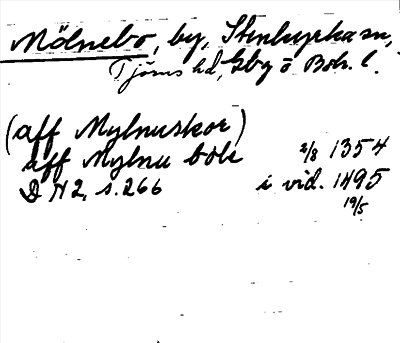 Mölnebo, by, Stenkyrka sn,
Tjörns hd, Gbg o Boh. l.
(aff Mylnuskor)
aff Mylnu bok 2/8 1354
D N 2, s. 266 i vid. 1495
19/5